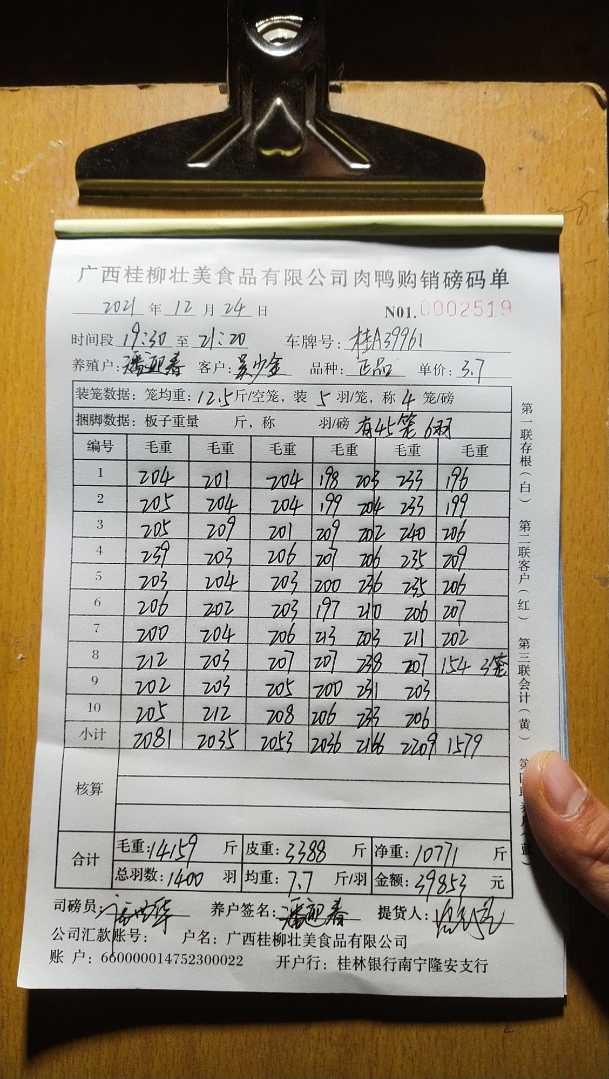 广西桂柳壮美食品有限公司肉鸭购销磅码单
2021 年 12 月 24 日 N01.0002519
时间段 19:30 至 21:20 车牌号：桂A39961
养殖户：潘迎春 客户：吴少金 品种：正品 单价：3.7
装笼数据：笼均重：12.5斤/空笼，装 5 羽/笼，称 4 笼/磅
捆脚数据：板子重量 斤，称 羽/磅 有45笼 6羽
编号 毛重 毛重 毛重 毛重 毛重 毛重
1 204 201 204 198 203 233 196
2 205 204 204 199 204 233 199
3 205 209 201 209 202 240 206
4 239 203 206 207 206 235 209
5 203 204 203 200 236 235 206
6 206 202 203 197 210 206 207
7 200 204 206 213 203 211 202
8 212 203 207 207 238 207 154 3笼
9 202 203 205 200 231 203
10 205 212 208 206 233 206
小计 2081 2035 2053 2036 2166 2209 1579
核算
合计 毛重：14159 斤 皮重：3388 斤 净重：10771 斤
总羽数：1400 羽 均重：7.7 斤/羽 金额：39853 元
司磅员： 养户签名：潘迎春 提货人：
公司汇款账号： 户名：广西桂柳壮美食品有限公司
账 户：660000014752300022 开户行：桂林银行南宁隆安支行
第一联存根（白） 第二联客户（红） 第三联会计（黄）